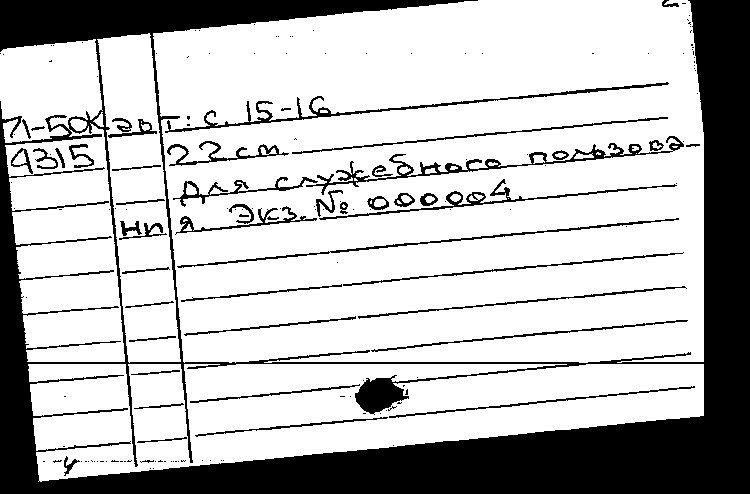 2
Л-50К эвт: с. 15-16.
4315 22 см.
Для служебного пользова-
ния. Экз. № 000004.
ч